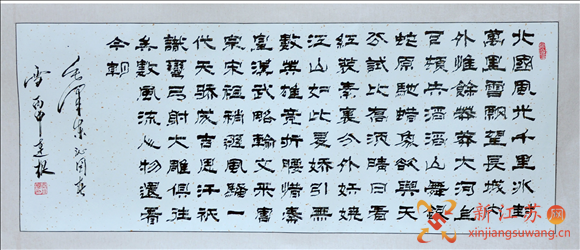 北國風光千里冰封
萬里雪飄望長城內
外惟餘莽莽大河上
下頓失滔滔山舞銀
蛇原馳蜡象欲與天
公試比高須晴日看
紅裝素裹分外妖嬈
江山如此多嬌引無
數英雄竞折腰惜秦
皇漢武略輸文采唐
宗宋祖稍遜風騷一
代天骄成吉思汗祇
識彎弓射大雕俱往
矣數風流人物還看
今朝
毛澤東沁園春
雪丙申建根
新江苏网
xinjiangsuwang.cn